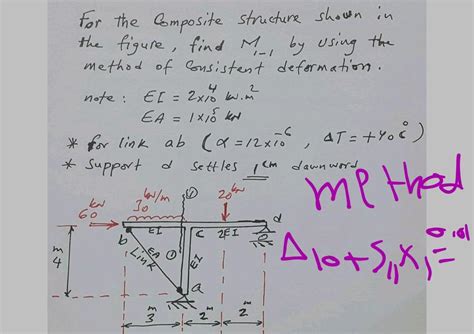 For the Composite structure shown in
the figure, find M₁₋₁ by using the
method of Consistent deformation.
note : EI = 2×10⁴ kN.m²
EA = 1×10⁵ kN
* for link ab (α = 12×10⁻⁶, ΔT = +40 c°)
* Support d settles 1 cm downward
method
Δ10 + S11 X1 = 0.01
60 kN
30 kN/m
①
20 kN
b
EI
c
2EI
d
EA
Link
①
EI
a
4 m
3 m
2 m
2 m